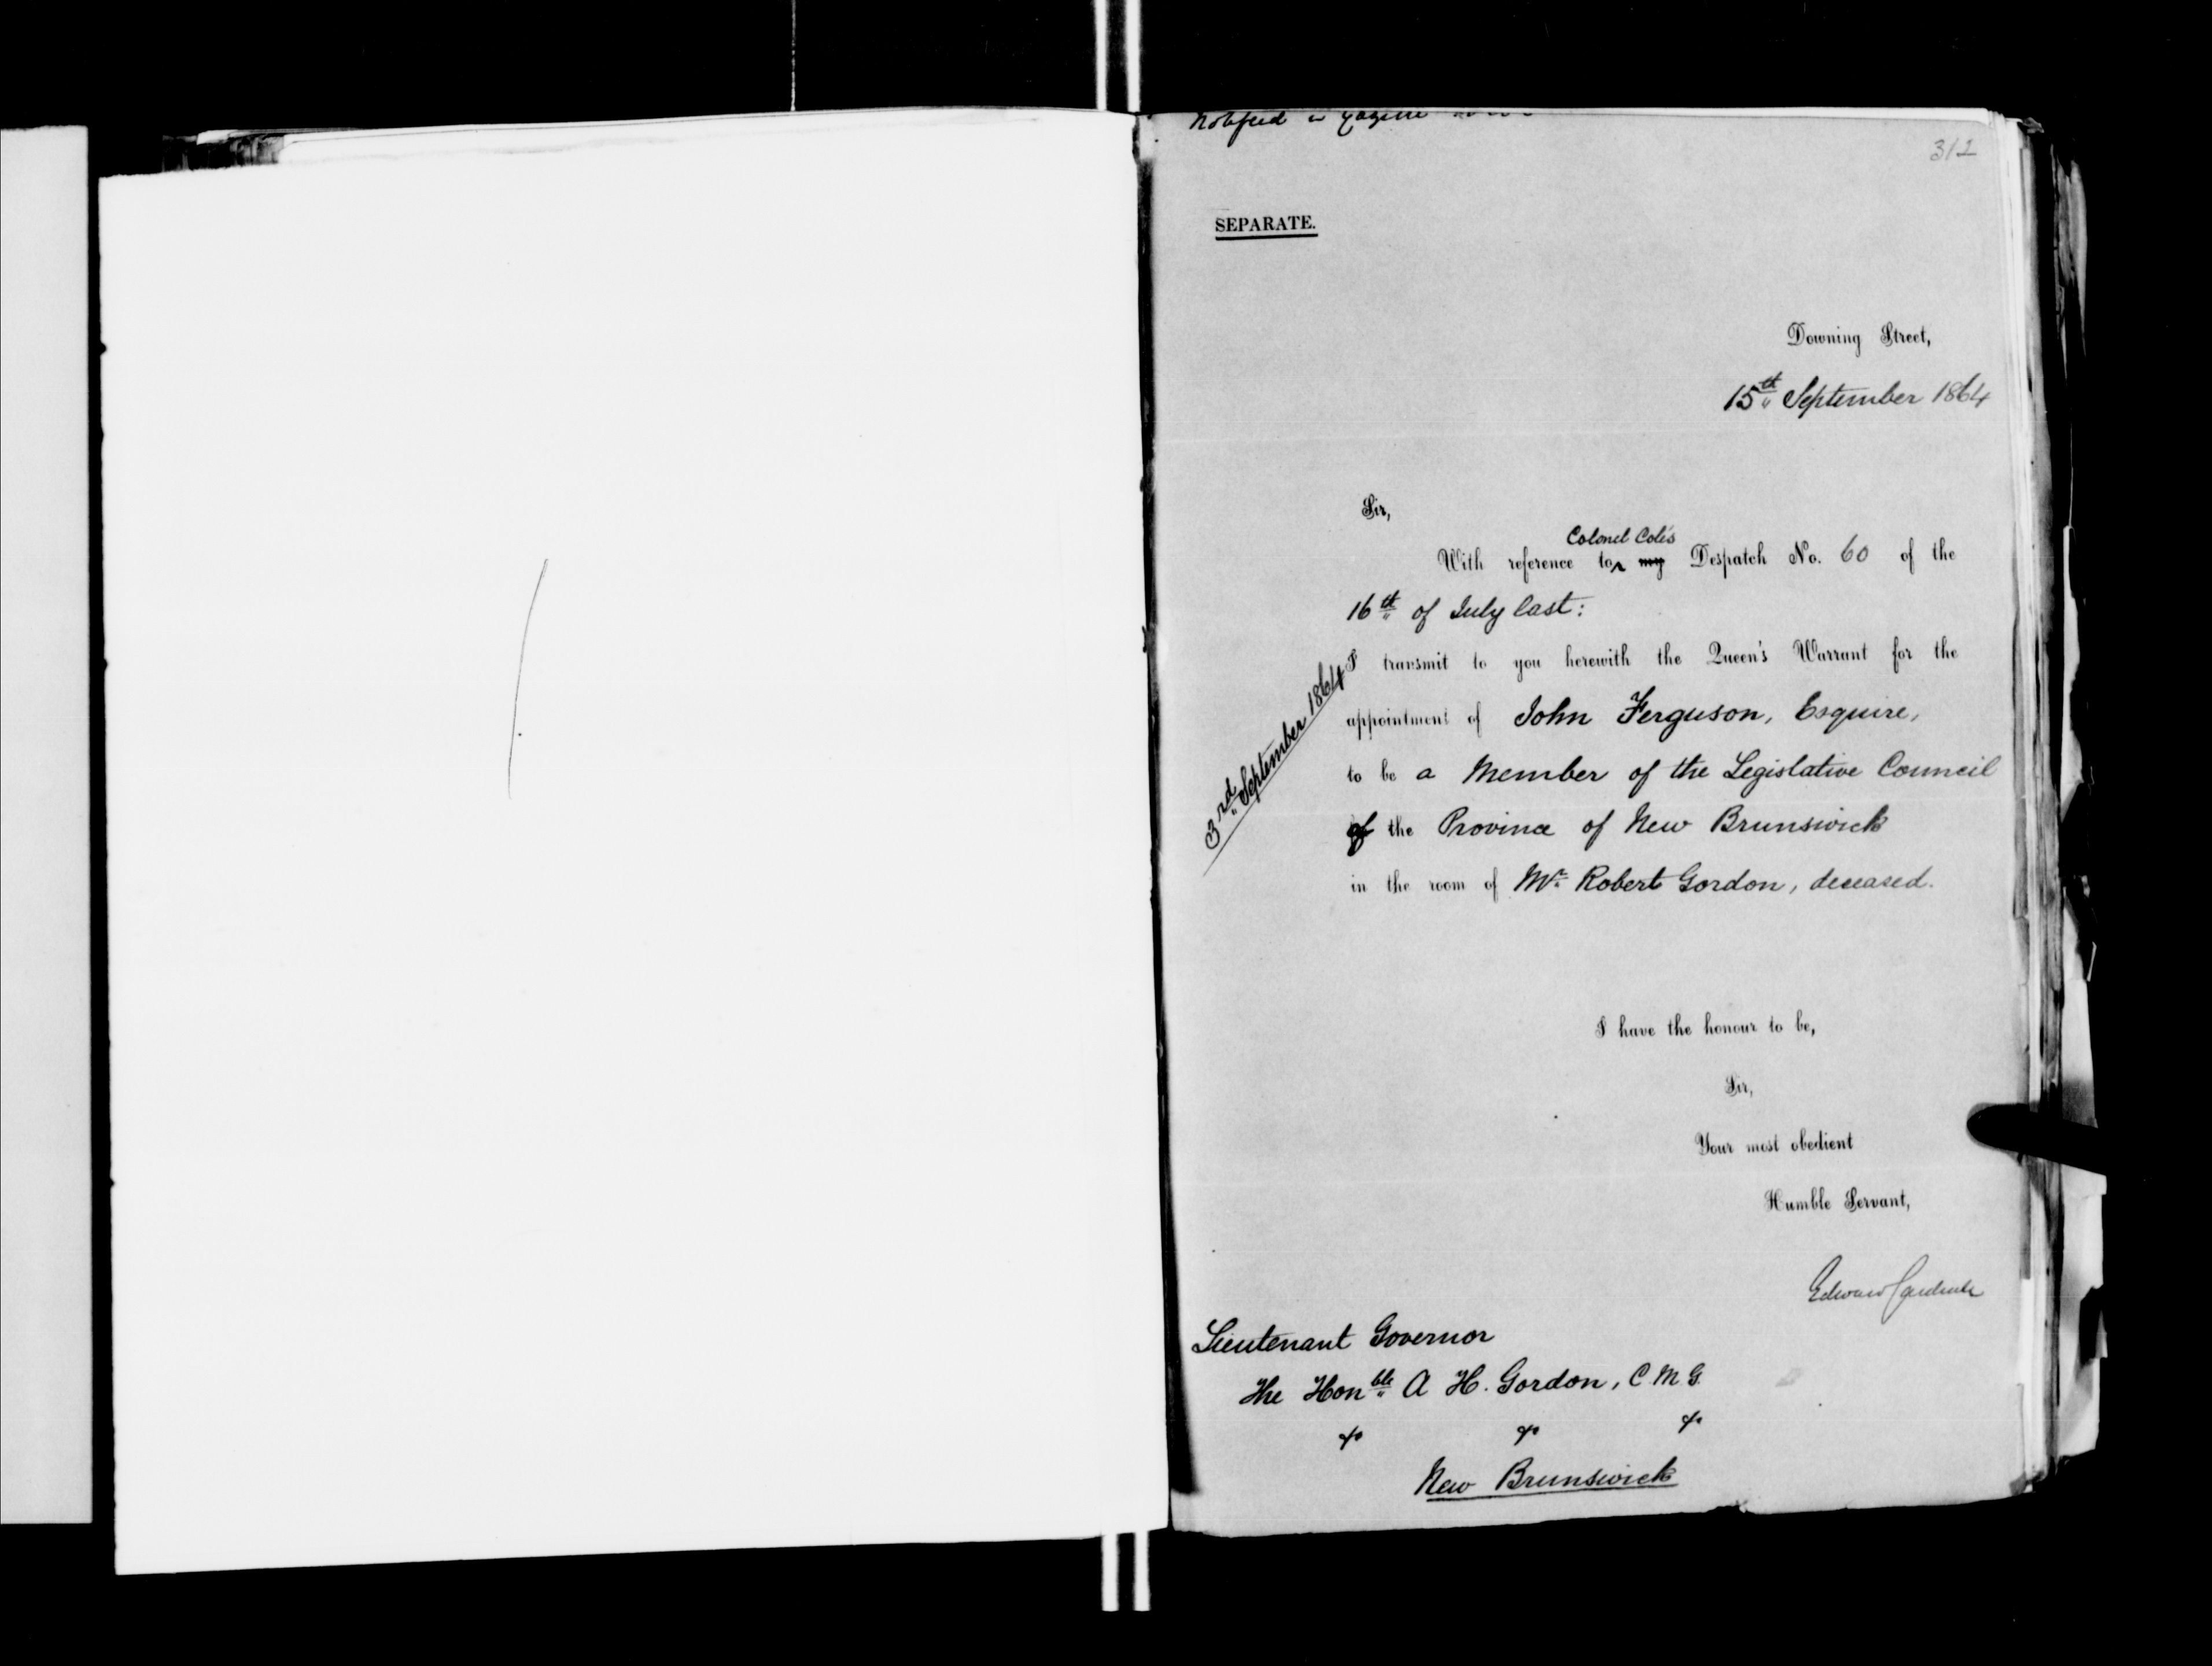 Notified in Gazette
312
SEPARATE.
Downing Street,
15th September 1864
Sir,
Colonel Cole's
With reference to my Despatch No. 60 of the
16th of July last:
3rd September 1864
I transmit to you herewith the Queen's Warrant for the
appointment of John Ferguson, Esquire,
to be a Member of the Legislative Council
of the Province of New Brunswick
in the room of Mr. Robert Gordon, deceased.
I have the honour to be,
Sir,
Your most obedient
Humble Servant,
Edward Cardwell
Lieutenant Governor
The Honble A H. Gordon, C.M.G.
&c &c &c
New Brunswick